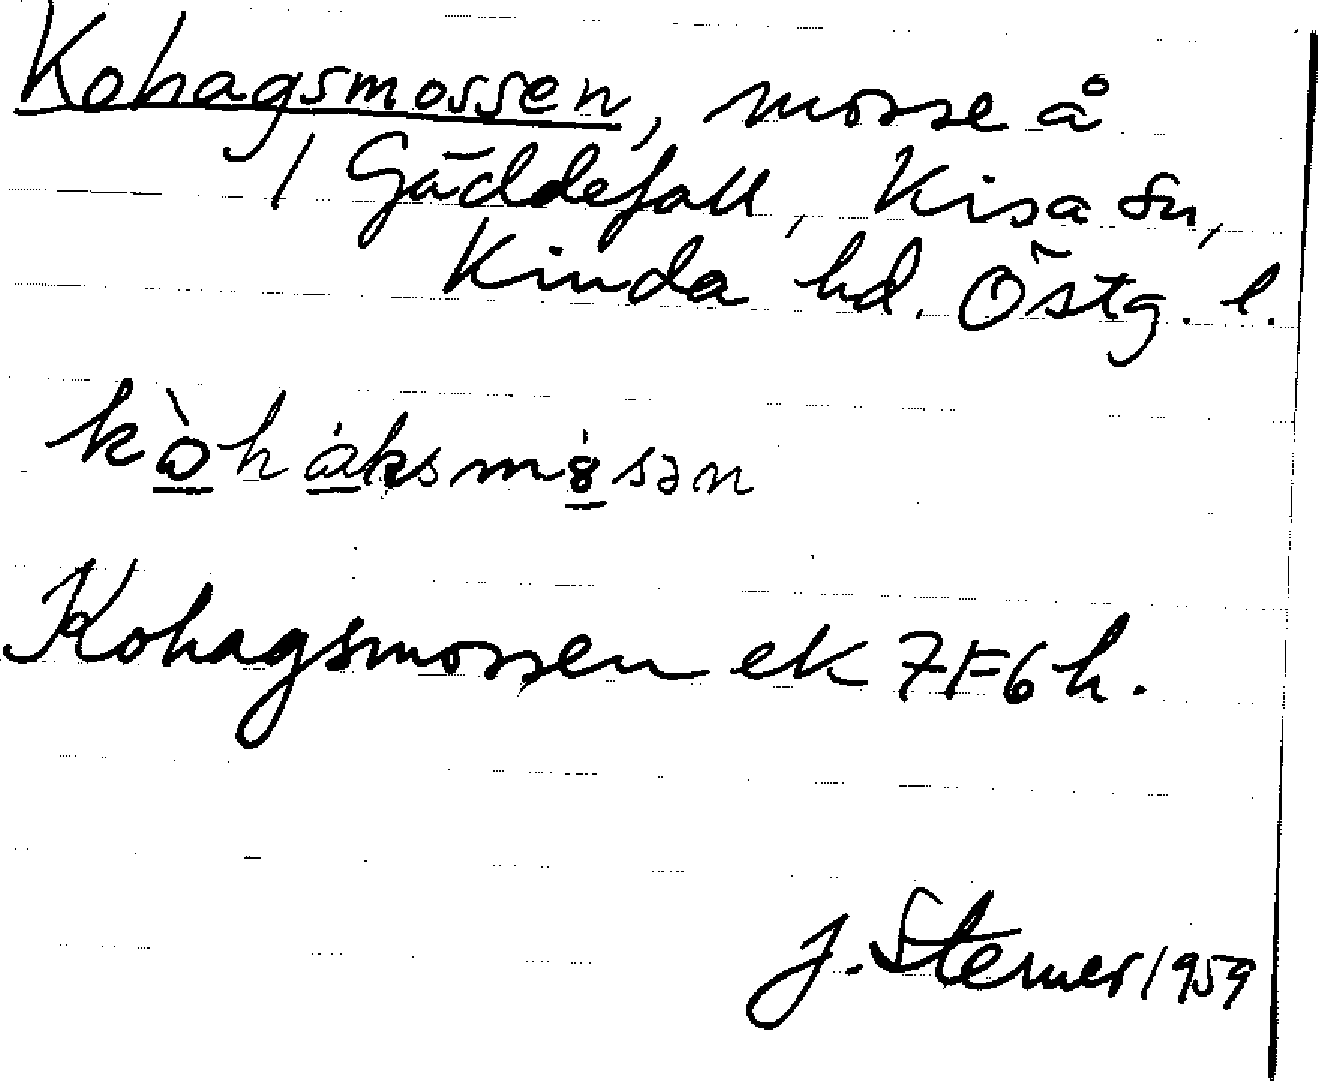 Kohagsmossen, mosse å
1 Gäddefall, Kisa sn,
Kinda hd. Östg. l.
Kohagsmossen ek 7F6h.
J. Sterner 1959